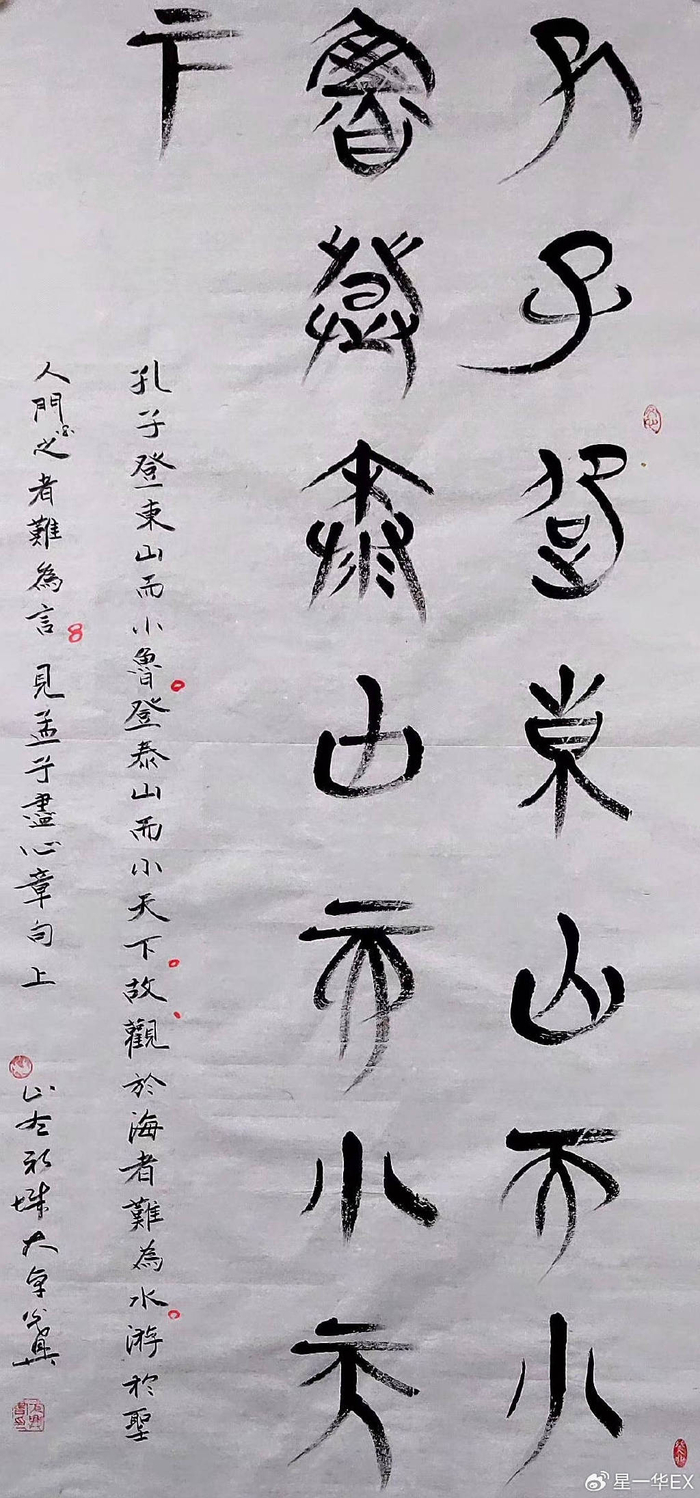 孔子登東山而小
魯登泰山而小天
下
孔子登東山而小魯登泰山而小天下故觀於海者難為水游於聖
人門之者難為言 見孟子盡心章句上
星一华EX